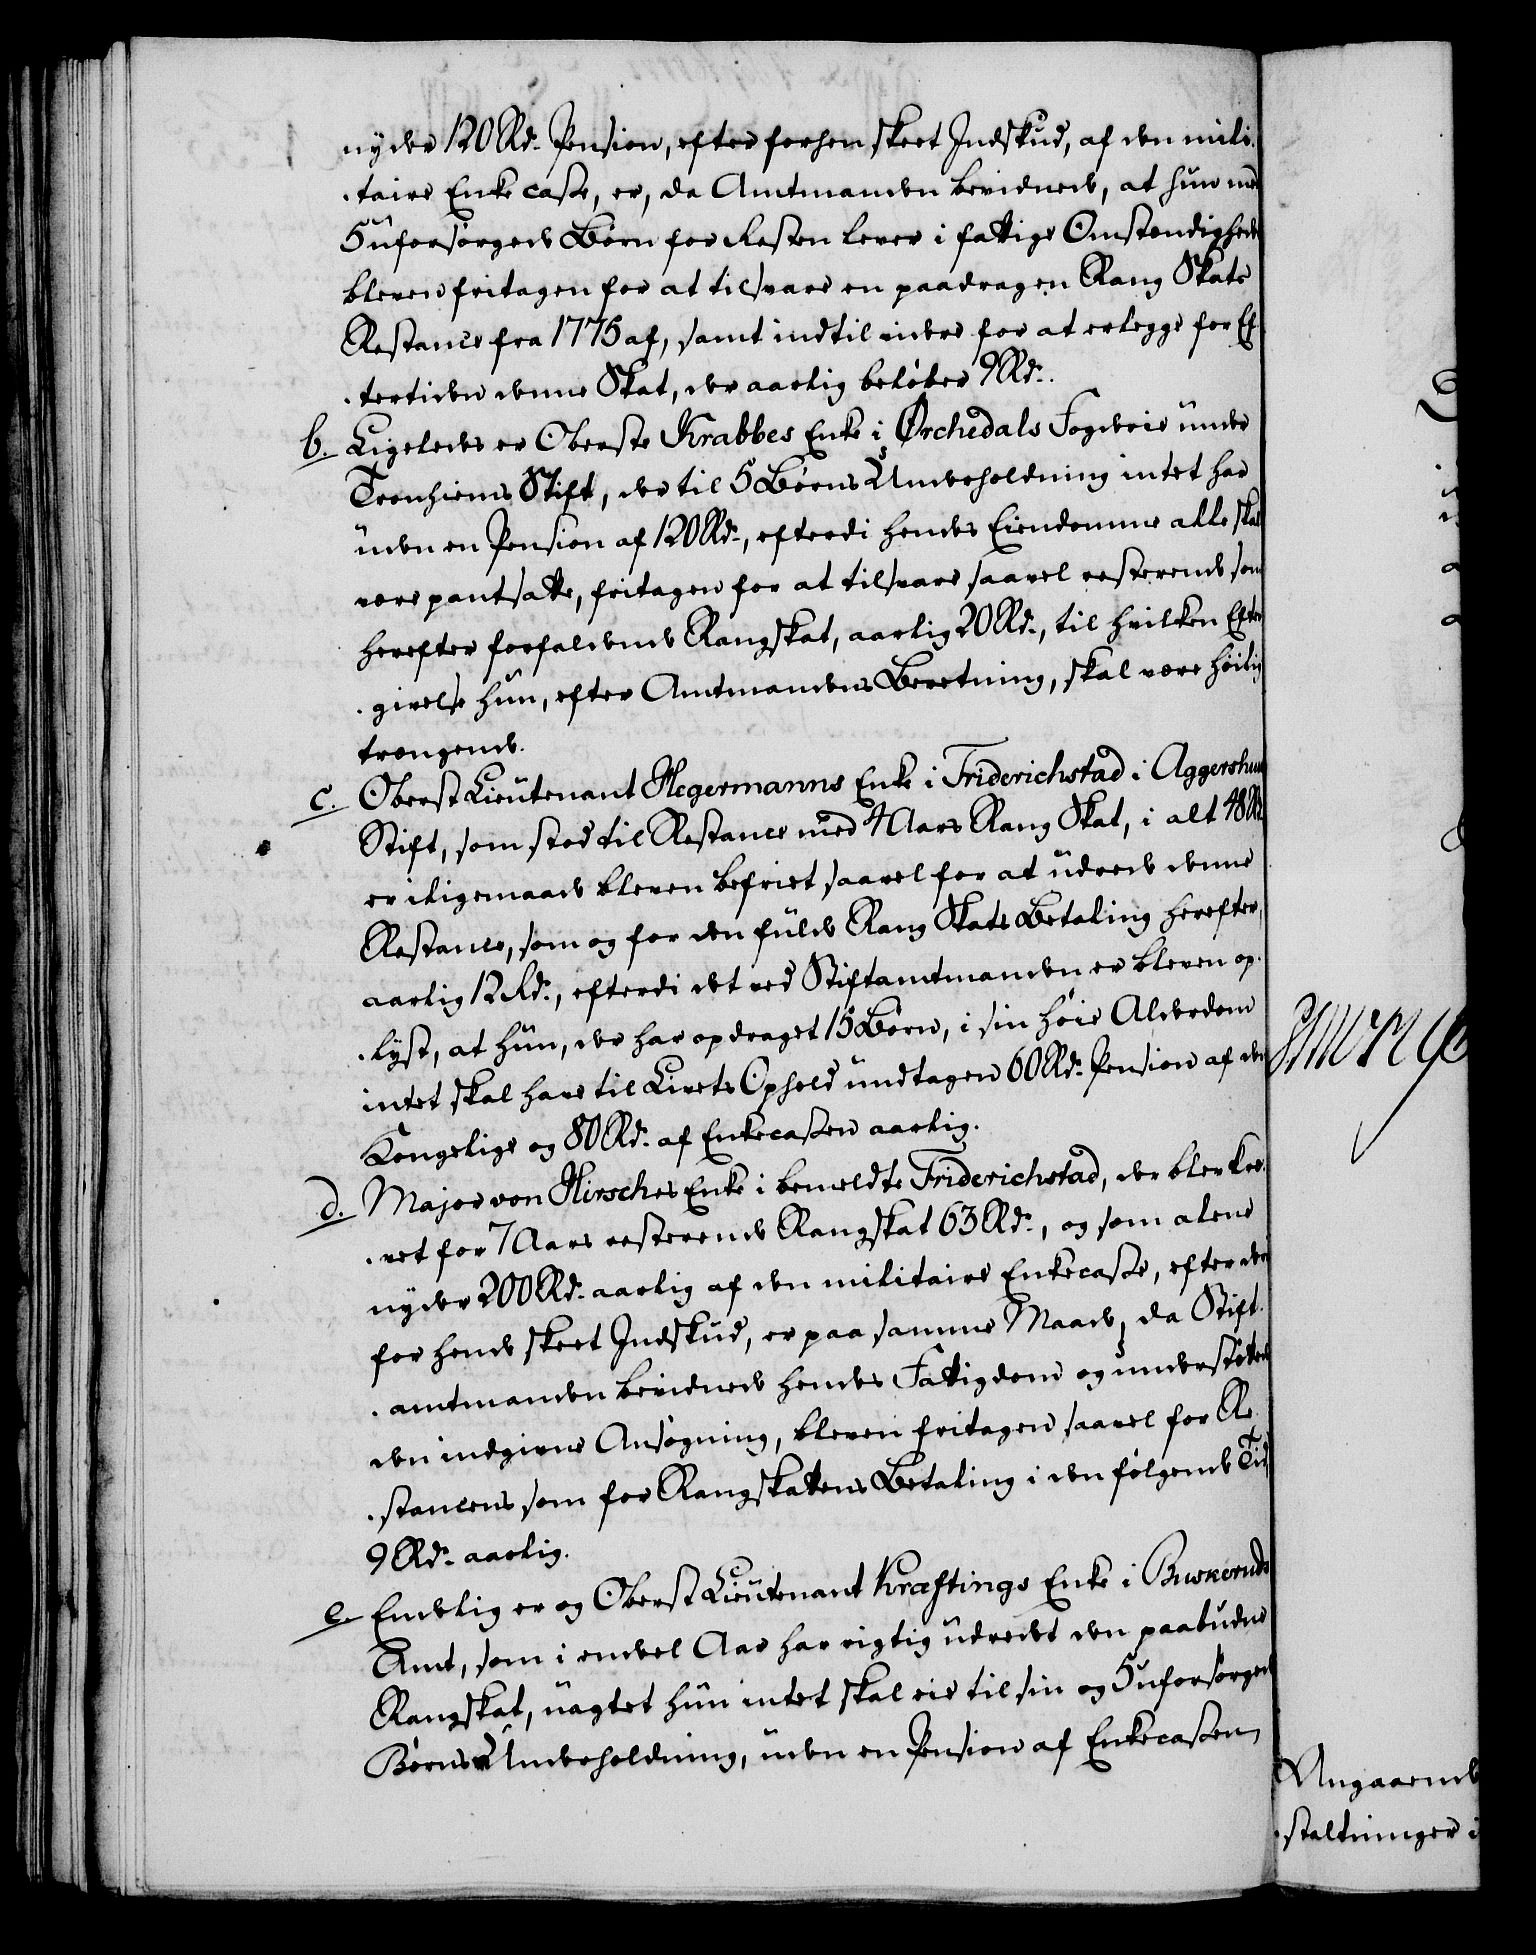 nyder 120 Rd. Pension, efter forhen skeet Indskud, af den mili-
-taire Enke casse, er, da Amtmanden bevidnede, at hun med
5 uforsørgede Børn for Resten lever i fattige Omstændigheder
bleven fritagen for at tilsvare en paadragen Rang Skats
Restance fra 1775 af, samt indtil videre for at erlegge for Ef-
-tertiden denne Skat, der aarlig beløber 9 Rd.
b. Ligeledes er Oberste Krabbes Enke i Ørchedals Fogderie under
Tronhiems Stift, der til 5 Børns Underholdning intet har
uden en Pension af 120 Rd., efterdi hendes Eiendomme alle skal
være pantsatte, fritagen for at tilsvare saavel resterende som
herefter forfaldende Rangskat, aarlig 20 Rd., til hvilken Efter
-givelse hun, efter Amtmandens Beretning, skal være høilig
trængende.
c. Oberst Lieutenant Hegermanns Enke i Friderichstad i Aggershuus
Stift, som stod til Restance med 4 Aars Rang Skat, i alt 48 Rd
er iligemaade bleven befriet saavel for at udrede denne
Restance, som og for den fulde Rang Skats Betaling herefter,
aarlig 12 Rd., efterdi det ved Stiftamtmanden er bleven op-
-lyst, at hun, der har opdraget 15 Børn, i sin høie Alderdom
intet skal have til Livets Ophold undtagen 60 Rd. Pension af den
Kongelige og 80 Rd. af Enkecassen aarlig.
d. Major von Hirsches Enke i bemeldte Friderichstad, der blev kræ-
-vet for 7 Aars resterende Rangskat 63 Rd., og som alene
nyder 200 Rd. aarlig af den militaire Enkecasse, efter det
for hende skeet Indskud, er paa samme Maade, da Stift-
-amtmanden bevidnede hendes Fattigdom og understøttede
den indgivne Ansøgning, bleven fritagen saavel for Re-
-stancens som for Rangskattens Betaling i den følgende Tid,
9 Rd. aarlig.
e. Endelig er og Oberst Lieutenant Kræftings Enke i Buskeruds
Amt, som i endeel Aar har rigtig udredet den paabudne
Rangskat, uagtet hun intet skal eie til sin og 5 uforsørgede
Børns Underholdning, uden en Pension af Enkecassen,
Angaaende
-staltninger i